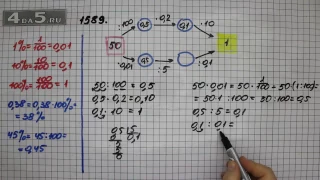 4da5.ru
1589.
:100
·0,2
·10
0,5
0,1
50
1
·0,01
0,5
:5
0,1
1% = 1/100 = 0,01
10% = 10/100 = 0,1
100% = 100/100 = 1
0,38 = 0,38·100% =
= 38%
45% = 45:100 =
= 0,45
50:100 = 0,5
0,5·0,2 = 0,10
0,1·10 = 1
0,5 5
0,1
50·0,01 = 50·1/100 = 50·(1:100) =
= 50·1:100 = 50:100 = 0,5
0,5:5 = 0,1
0,1:0,1 =